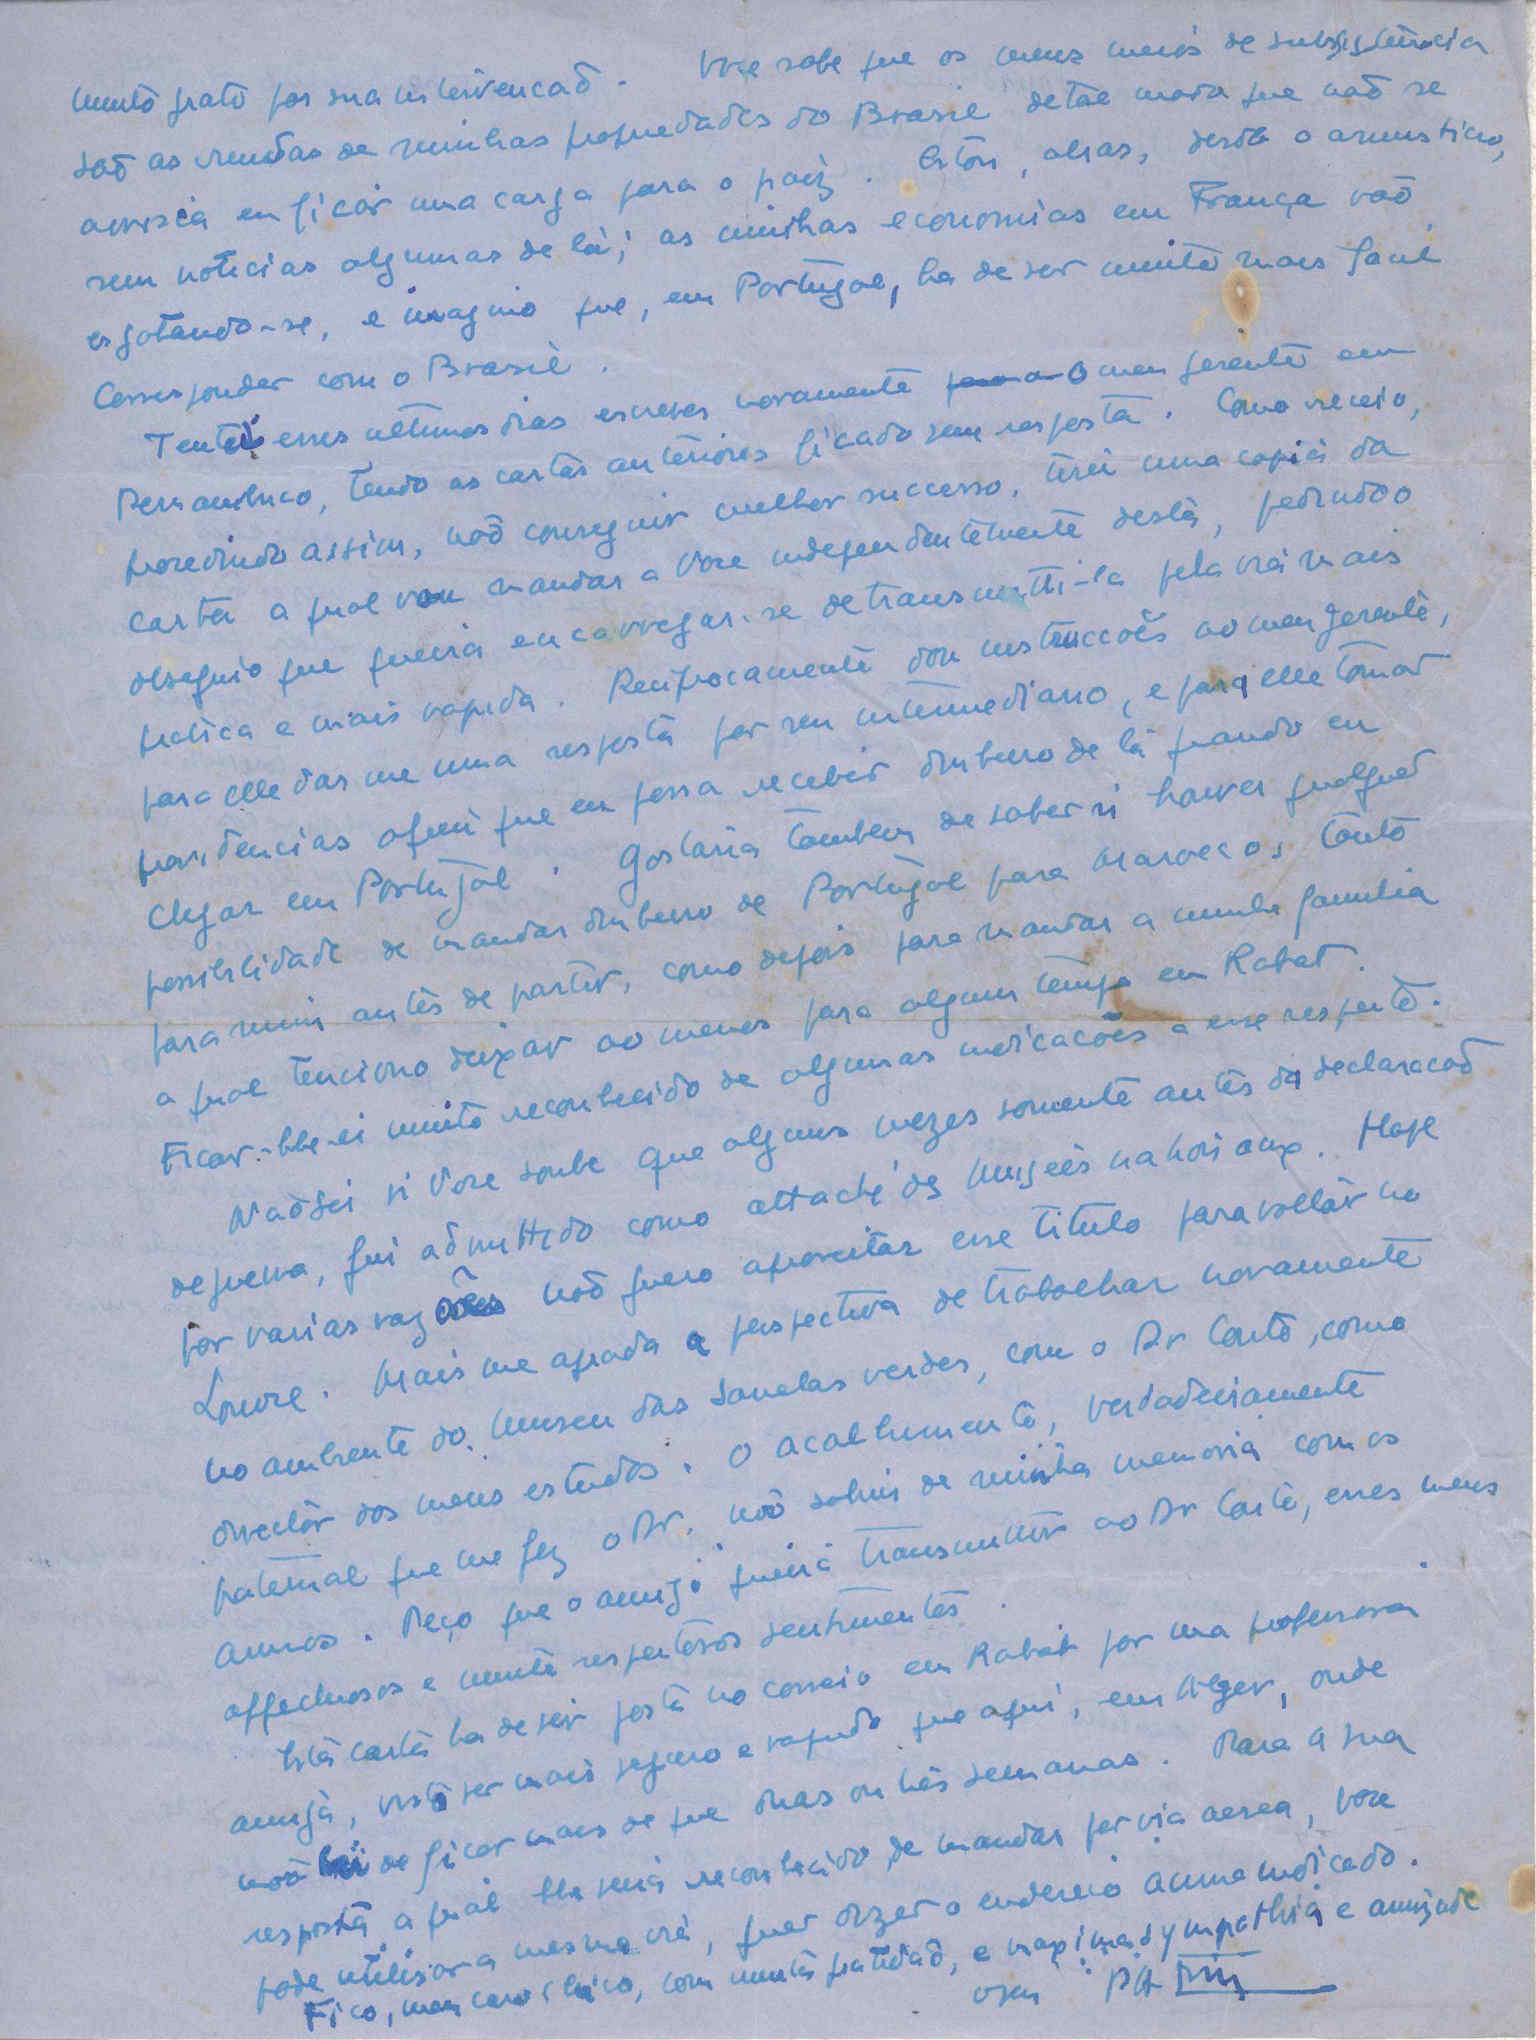 muito grato por sua intervencaõ. Voce sabe que os meus meios de subsistencia
saõ as rendas de minhas propriedades do Brasil de tal modo que naõ se
arrisca eu ficar uma carga para o paiz. Estou, alias, desde o armisticio,
sem noticias algumas de lá; as minhas economias em França vaõ
esgotando-se, e imagino que, em Portugal, ha de ser muito mais facil
corresponder com o Brasil.
Tentei esses ultimos dias escrever novamente para o meu gerente em
Pernambuco, tendo as cartas anteriores ficado sem resposta. Como receio,
procedindo assim, naõ conseguir melhor successo, tirei uma copia da
carta a qual vou mandar a Voce independentemente desta, pedindo o
obsequio que queira encarregar-se de transmitti-la pela via mais
pratica e mais rapida. Reciprocamente dou instruccoẽs ao meu gerente,
para elle dar me uma resposta por seu intermediario, e para elle tomar
providencias afim que eu possa receber dinheiro de lá quando eu
chegar em Portugal. Gostaria tambem de saber si haver qualquer
possibilidade de mandar dinheiro de Portugal para Marrocos tanto
para mim antes de partir, como depois para mandar a minha familia
a qual tenciono deixar ao menos para algum tempo em Rabat.
Ficar-lhe-ei muito reconhecido de algumas indicacoẽs a esse respeito.
Naõ sei si Voce soube que alguns mezes somente antes da declaracaõ
de guerra, fui admittido como attaché des Musées nationaux. Hoje
por varias razoẽs naõ quero aproveitar esse titulo para voltar no
Louvre. Mais me agrada a perspectiva de trabalhar novamente
no ambiente do Museu das Janelas verdes, com o Dr Couto, como
director dos meus estudos. O acolhimento, verdadeiramente
paternal que me fez o Dr. naõ sahiu de minha memoria com os
annos. Peço que o amigo queira transmittir ao Dr Couto, esses meus
affectuosos e muito respeitosos sentimentos.
Esta carta ha de ser posta no correio em Rabat por uma professora
amiga, visto ser mais seguro e rapido que aqui, em Alger, onde
naõ hei de ficar mais de que duas ou tres semanas. Para a sua
resposta a qual lhe seria reconhecido de mandar por via aerea, Voce
pode utilisar a mesma via, quer dizer o endereço acima indicado.
Fico, meu caro Chico, com muita gratidaõ, e maxima sympathia e amizade
o seu PA